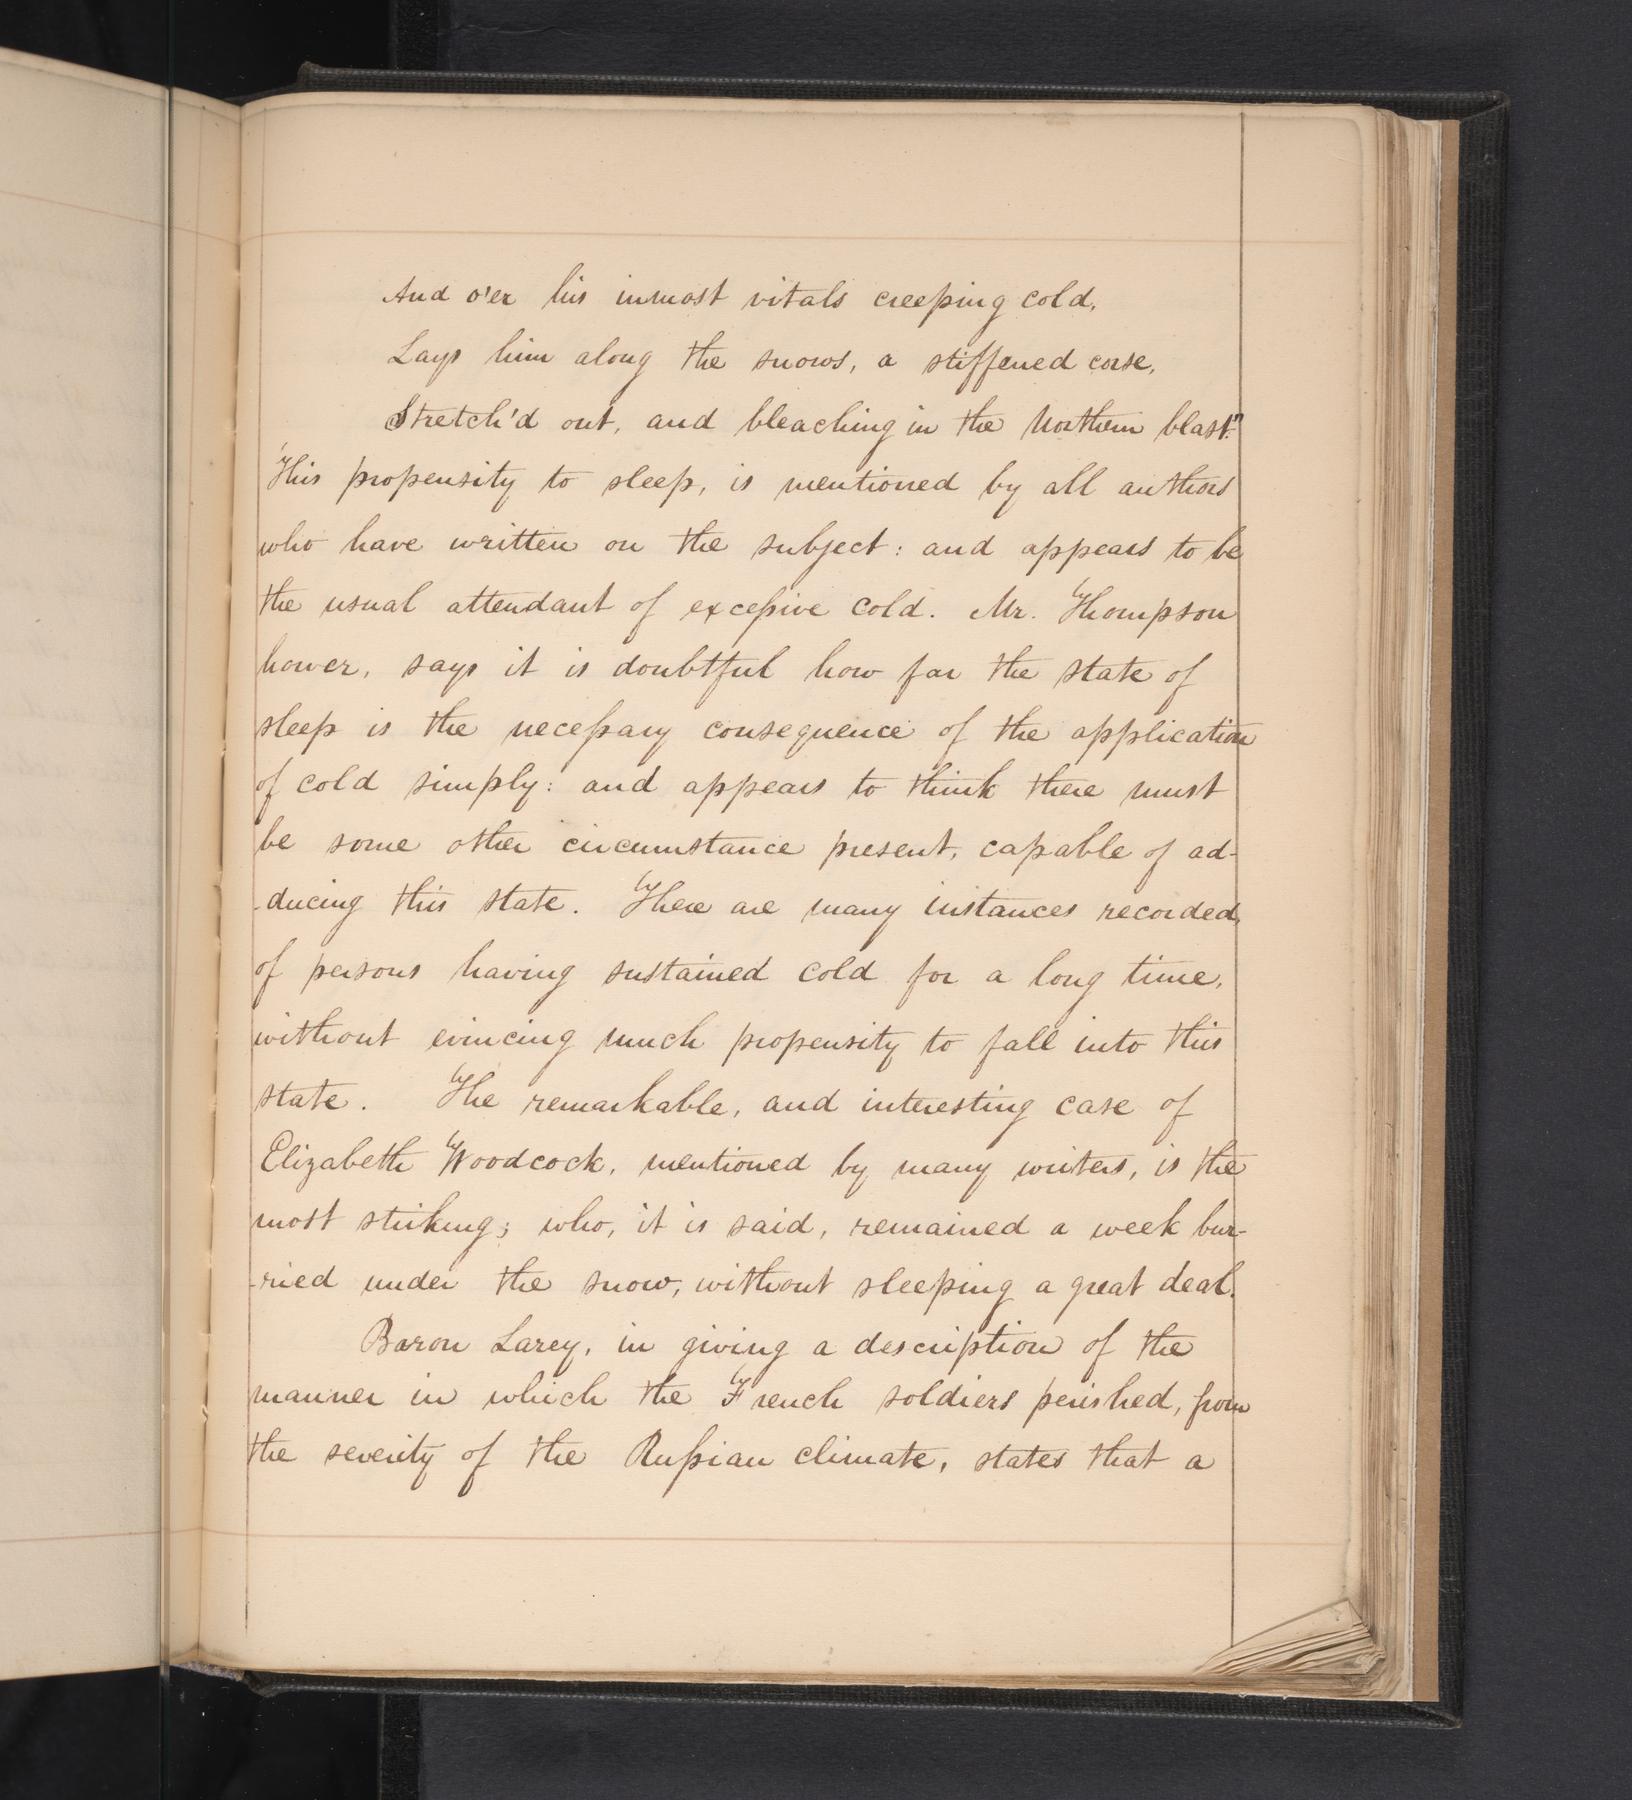 And o'er his inmost vitals creeping cold,
Lays him along the snows, a stiffened corse,
Stretch'd out, and bleaching in the Northern blast."
This propensity to sleep, is mentioned by all authors
who have written on the subject: and appears to be
the usual attendant of excessive cold. Mr. Thompson
hower, says it is doubtful how far the state of
sleep is the necessary consequence of the application
of cold simply: and appears to think there must
be some other circumstance present, capable of ad-
-ducing this state. There are many instances recorded,
of persons having sustained cold for a long time,
without evincing much propensity to fall into this
state. The remarkable, and interesting case of
Elizabeth Woodcock, mentioned by many writers, is the
most striking; who, it is said, remained a week bur-
-ried under the snow, without sleeping a great deal.
Baron Larey, in giving a description of the
manner in which the French soldiers perished, from
the severity of the Russian climate, states that a